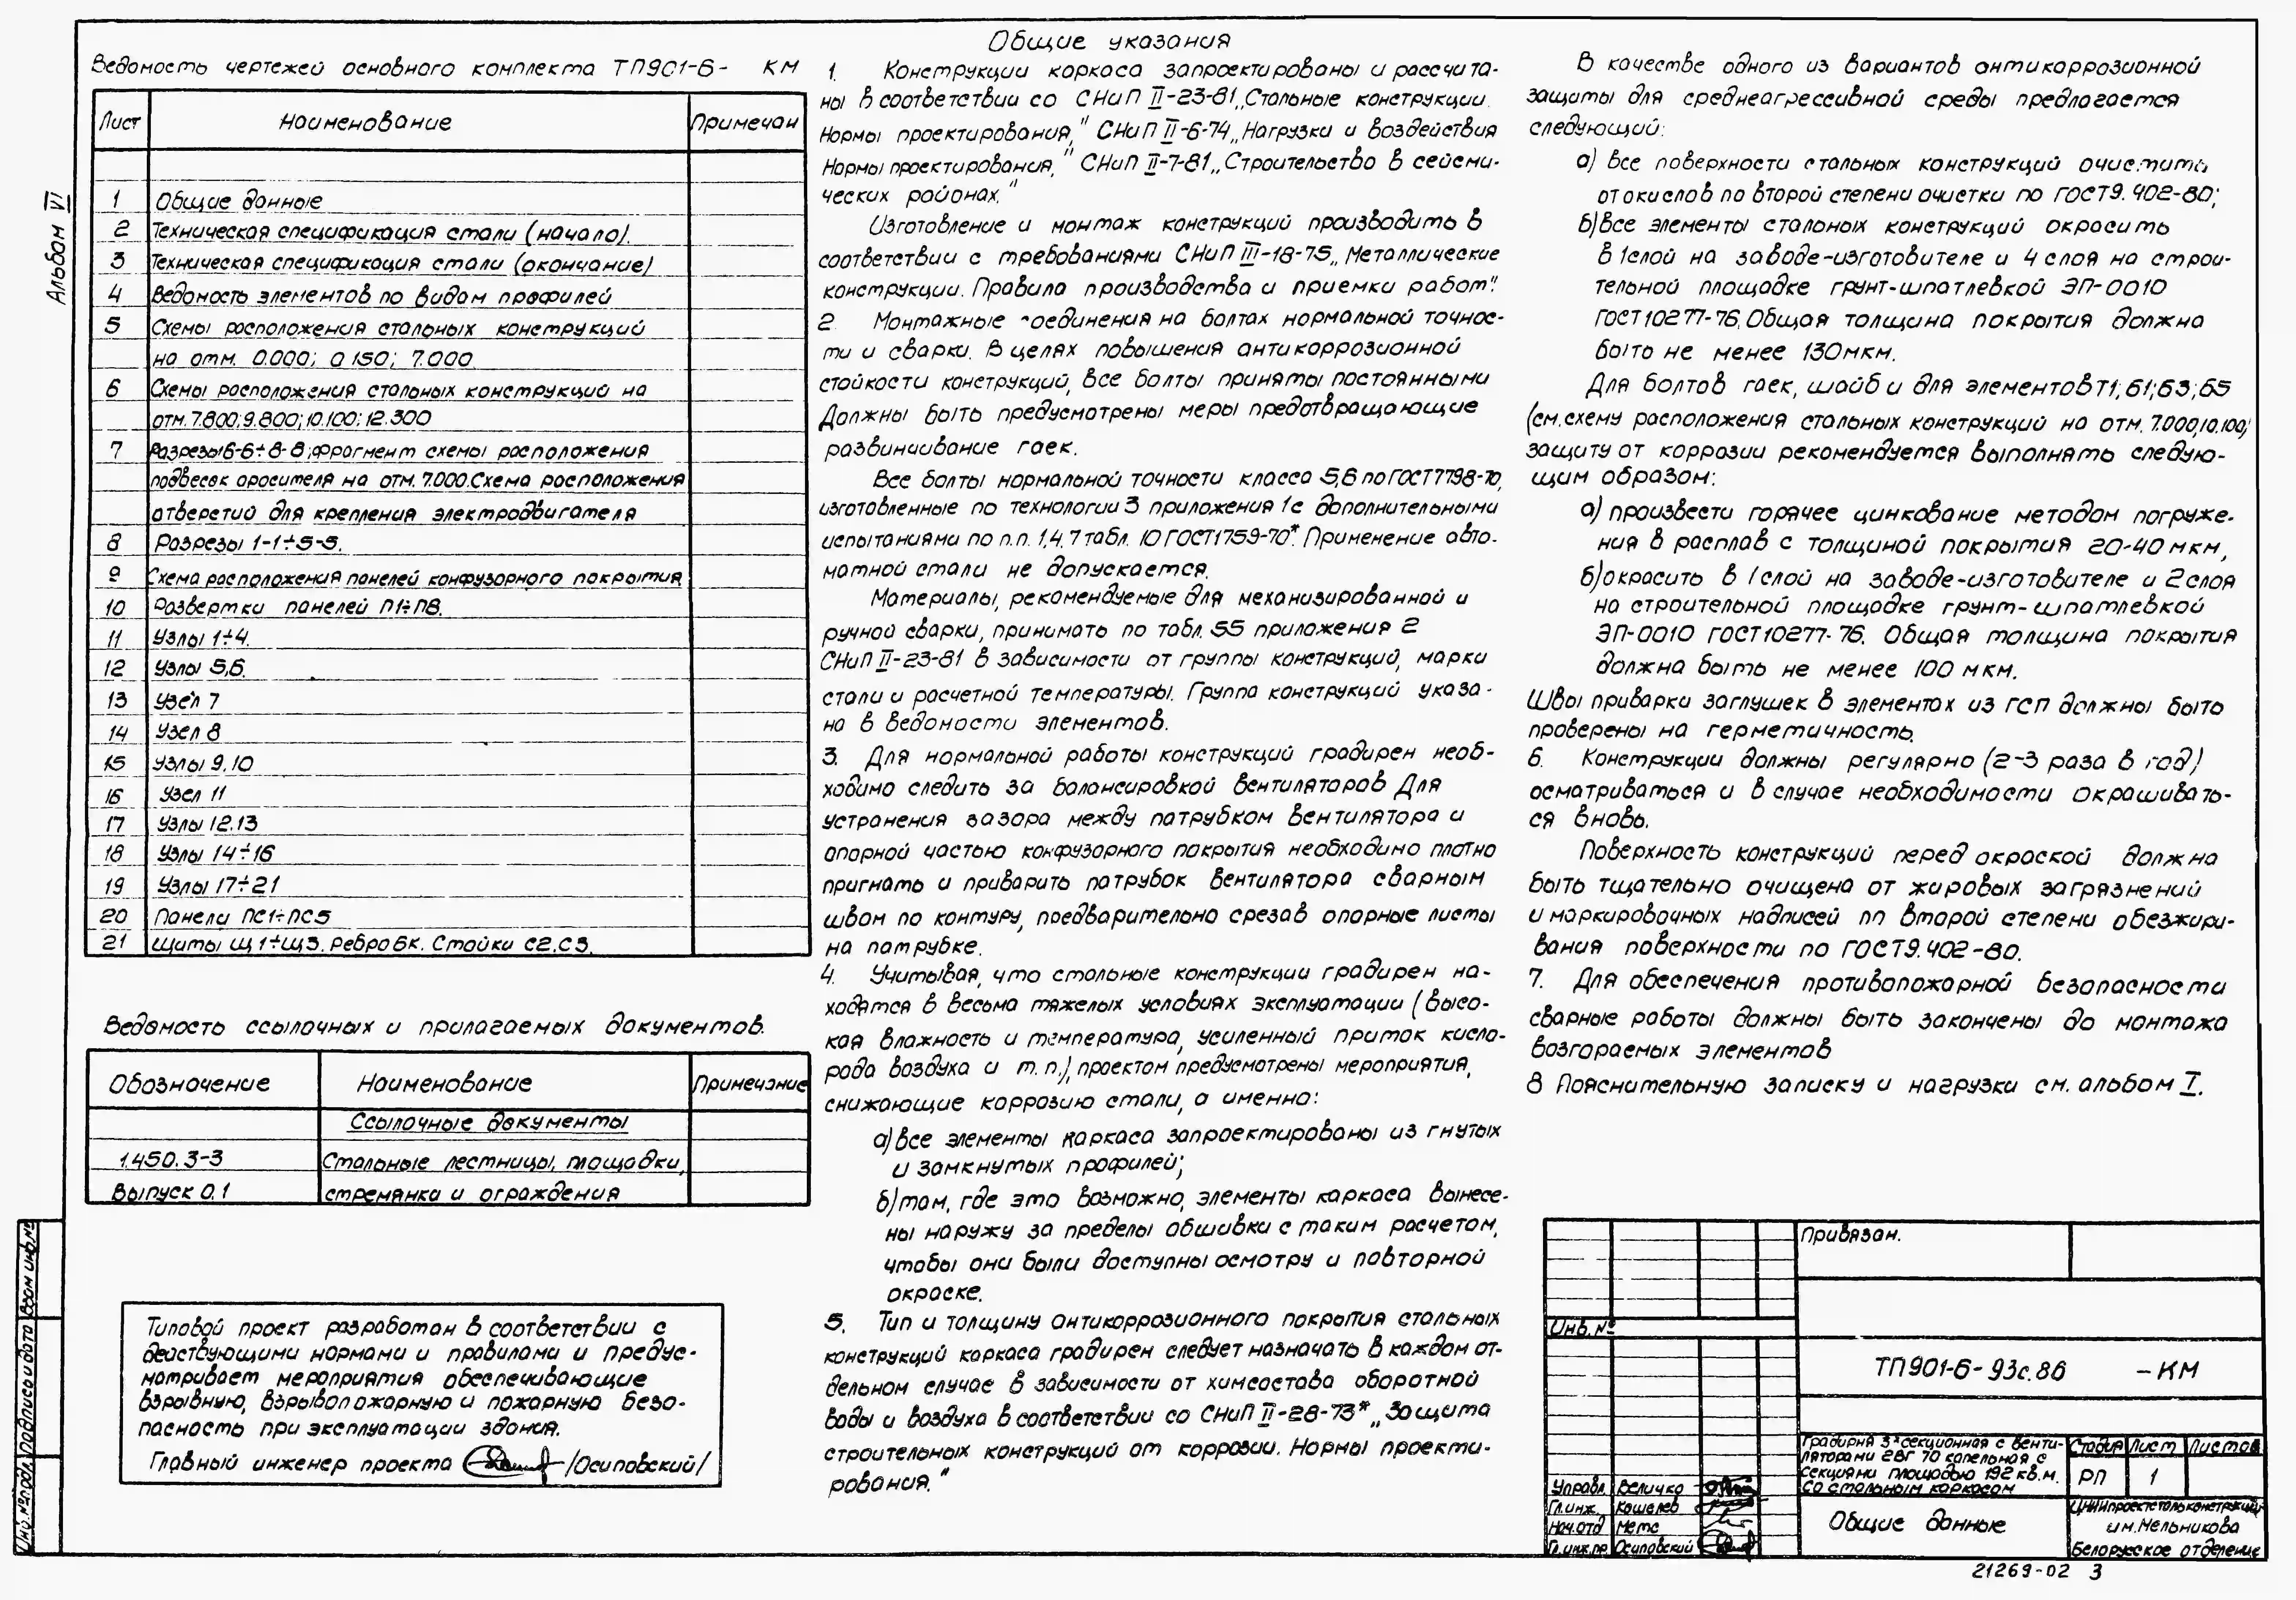 Альбом VI
Ведомость чертежей основного комплекта ТП901-6- КМ
Лист Наименование Примечан
1 Общие данные
2 Техническая спецификация стали (начало).
3 Техническая спецификация стали (окончание)
4 Ведомость элементов по видам профилей
5 Схемы расположения стальных конструкций
на отм. 0.000; 0.150; 7.000
6 Схемы расположения стальных конструкций на
отм. 7.800; 9.800; 10.100; 12.300
7 Разрезы 6-6÷8-8; фрагмент схемы расположения
подвесок оросителя на отм. 7.000. Схема расположения
отверстий для крепления электродвигателя
8 Разрезы 1-1÷5-5.
9 Схема расположения панелей конфузорного покрытия
10 Развертки панелей П1÷П8.
11 Узлы 1÷4.
12 Узлы 5,6.
13 Узел 7
14 Узел 8
15 Узлы 9,10
16 Узел 11
17 Узлы 12.13
18 Узлы 14÷16
19 Узлы 17÷21
20 Панели ПС1÷ПС5
21 Щиты Щ1÷Щ3. Ребро БК. Стойки С2.С3.
Ведомость ссылочных и прилагаемых документов.
Обозначение Наименование Примечание
Ссылочные документы
1.450.3-3 Стальные лестницы, площадки,
Выпуск 0.1 стремянки и ограждения
Типовой проект разработан в соответствии с
действующими нормами и правилами и предус-
матривает мероприятия обеспечивающие
взрывную, взрывопожарную и пожарную безо-
пасность при эксплуатации здания.
Главный инженер проекта /Осиповский/
Общие указания
1. Конструкции каркаса запроектированы и рассчита-
ны в соответствии со СНиП II-23-81 „Стальные конструкции.
Нормы проектирования," СНиП II-6-74 „Нагрузки и воздействия
Нормы проектирования," СНиП II-7-81 „Строительство в сейсми-
ческих районах."
Изготовление и монтаж конструкций производить в
соответствии с требованиями СНиП III-18-75 „Металлические
конструкции. Правила производства и приемки работ".
2. Монтажные соединения на болтах нормальной точнос-
ти и сварки. В целях повышения антикоррозионной
стойкости конструкций, все болты приняты постоянными
Должны быть предусмотрены меры предотвращающие
развинчивание гаек.
Все болты нормальной точности класса 5,6 по ГОСТ 7798-70,
изготовленные по технологии 3 приложения 1 с дополнительными
испытаниями по п.п. 1,4,7 табл. 10 ГОСТ1759-70*. Применение авто-
матной стали не допускается.
Материалы, рекомендуемые для механизированной и
ручной сварки, принимать по табл. 55 приложения 2
СНиП II-23-81 в зависимости от группы конструкций, марки
стали и расчетной температуры. Группа конструкций указа-
на в ведомости элементов.
3. Для нормальной работы конструкций градирен необ-
ходимо следить за балансировкой вентиляторов Для
устранения зазора между патрубком вентилятора и
опорной частью конфузорного покрытия необходимо плотно
пригнать и приварить патрубок вентилятора сварным
швом по контуру, предварительно срезав опорные листы
на патрубке.
4. Учитывая, что стальные конструкции градирен на-
ходятся в весьма тяжелых условиях эксплуатации (высо-
кая влажность и температура, усиленный приток кисло-
рода воздуха и т.п.), проектом предусмотрены мероприятия,
снижающие коррозию стали, а именно:
а) все элементы каркаса запроектированы из гнутых
и замкнутых профилей;
б) там, где это возможно, элементы каркаса вынесе-
ны наружу за пределы обшивки с таким расчетом,
чтобы они были доступны осмотру и повторной
окраске.
5. Тип и толщину антикоррозионного покрытия стальных
конструкций каркаса градирен следует назначать в каждом от-
дельном случае в зависимости от химсостава оборотной
воды и воздуха в соответствии со СНиП II-28-73* „Защита
строительных конструкций от коррозии. Нормы проекти-
рования."
В качестве одного из вариантов антикоррозионной
защиты для среднеагрессивной среды предлагается
следующий:
а) все поверхности стальных конструкций очистить
от окислов по второй степени очистки по ГОСТ 9.402-80;
б) все элементы стальных конструкций окрасить
в 1 слой на заводе-изготовителе и 4 слоя на строи-
тельной площадке грунт-шпатлевкой ЭП-0010
ГОСТ10277-76. Общая толщина покрытия должна
быть не менее 130мкм.
Для болтов гаек, шайб и для элементов Т1; 61; 63; 65
(см. схему расположения стальных конструкций на отм. 7.000, 10.100)
защиту от коррозии рекомендуется выполнять следую-
щим образом:
а) произвести горячее цинкование методом погруже-
ния в расплав с толщиной покрытия 20-40 мкм,
б) окрасить в 1 слой на заводе-изготовителе и 2 слоя
на строительной площадке грунт-шпатлевкой
ЭП-0010 ГОСТ10277-76. Общая толщина покрытия
должна быть не менее 100 мкм.
Швы приварки заглушек в элементах из ГСП должны быть
проверены на герметичность.
6. Конструкции должны регулярно (2-3 раза в год)
осматриваться и в случае необходимости окрашивать-
ся вновь.
Поверхность конструкций перед окраской должна
быть тщательно очищена от жировых загрязнений
и маркировочных надписей по второй степени обезжири-
вания поверхности по ГОСТ9.402-80.
7. Для обеспечения противопожарной безопасности
сварные работы должны быть закончены до монтажа
возгораемых элементов
8 Пояснительную записку и нагрузки см. альбом I.
Привязан.
Инв.№
ТП901-6-93с.86 -КМ
Градирня 3х секционная с венти-
ляторами 2ВГ 70 капельная с
секциями площадью 192 кв.м.
Со стальным каркасом
Стадия Лист Листов
РП 1
Управл. Величко
Гл.инж. Кошелев
Нач.отд Метс
Гл.инж.пр. Осиповский
Общие данные
ЦНИИпроектстальконструкция
им.Мельникова
Белорусское отделение
Инв.№подл. Подпись и дата Взам инв.№
21269-02 3